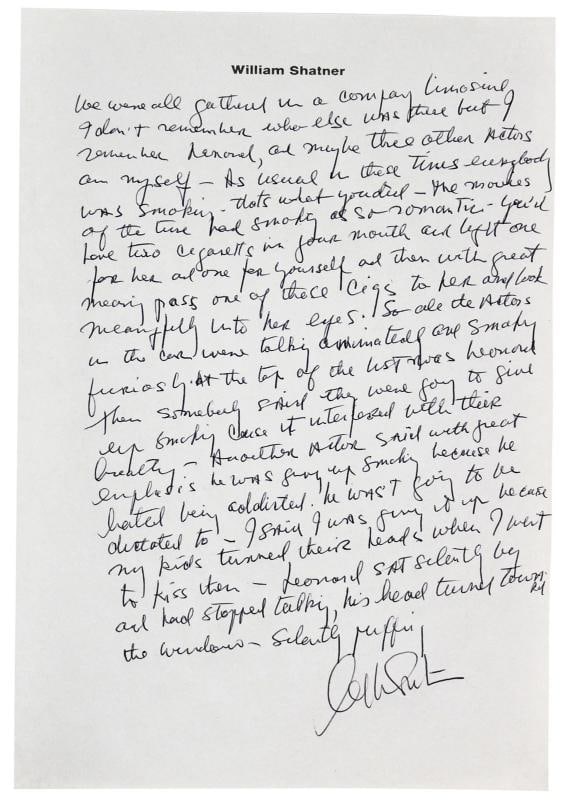 William Shatner
We were all gathered in a company limosine
I don't remember who else was there but I
remember Leonard, and maybe three other Actors
and myself – As usual in these times everybody
was smoking – that's what you did – the movies
of the time had smoking as so romantic – you'd
have two cigaretts in your mouth and light one
for her and one for yourself and then with great
meaning pass one of these Cigs to her and look
meaningfully into her eyes. So all the Actors
in the car were talking animatedly and smoking
furiously. At the top of the list was Leonard
Then somebody said they were going to give
up smoking cause it interfered with their
breathing – Another Actor said with great
emphasis he was giving up smoking because he
hated being addicted. he wasn't going to be
dictated to – I said I was giving it up because
my kids turned their heads when I went
to kiss them – Leonard sat silently by
and had stopped talking, his head turned toward
the window – silently puffing